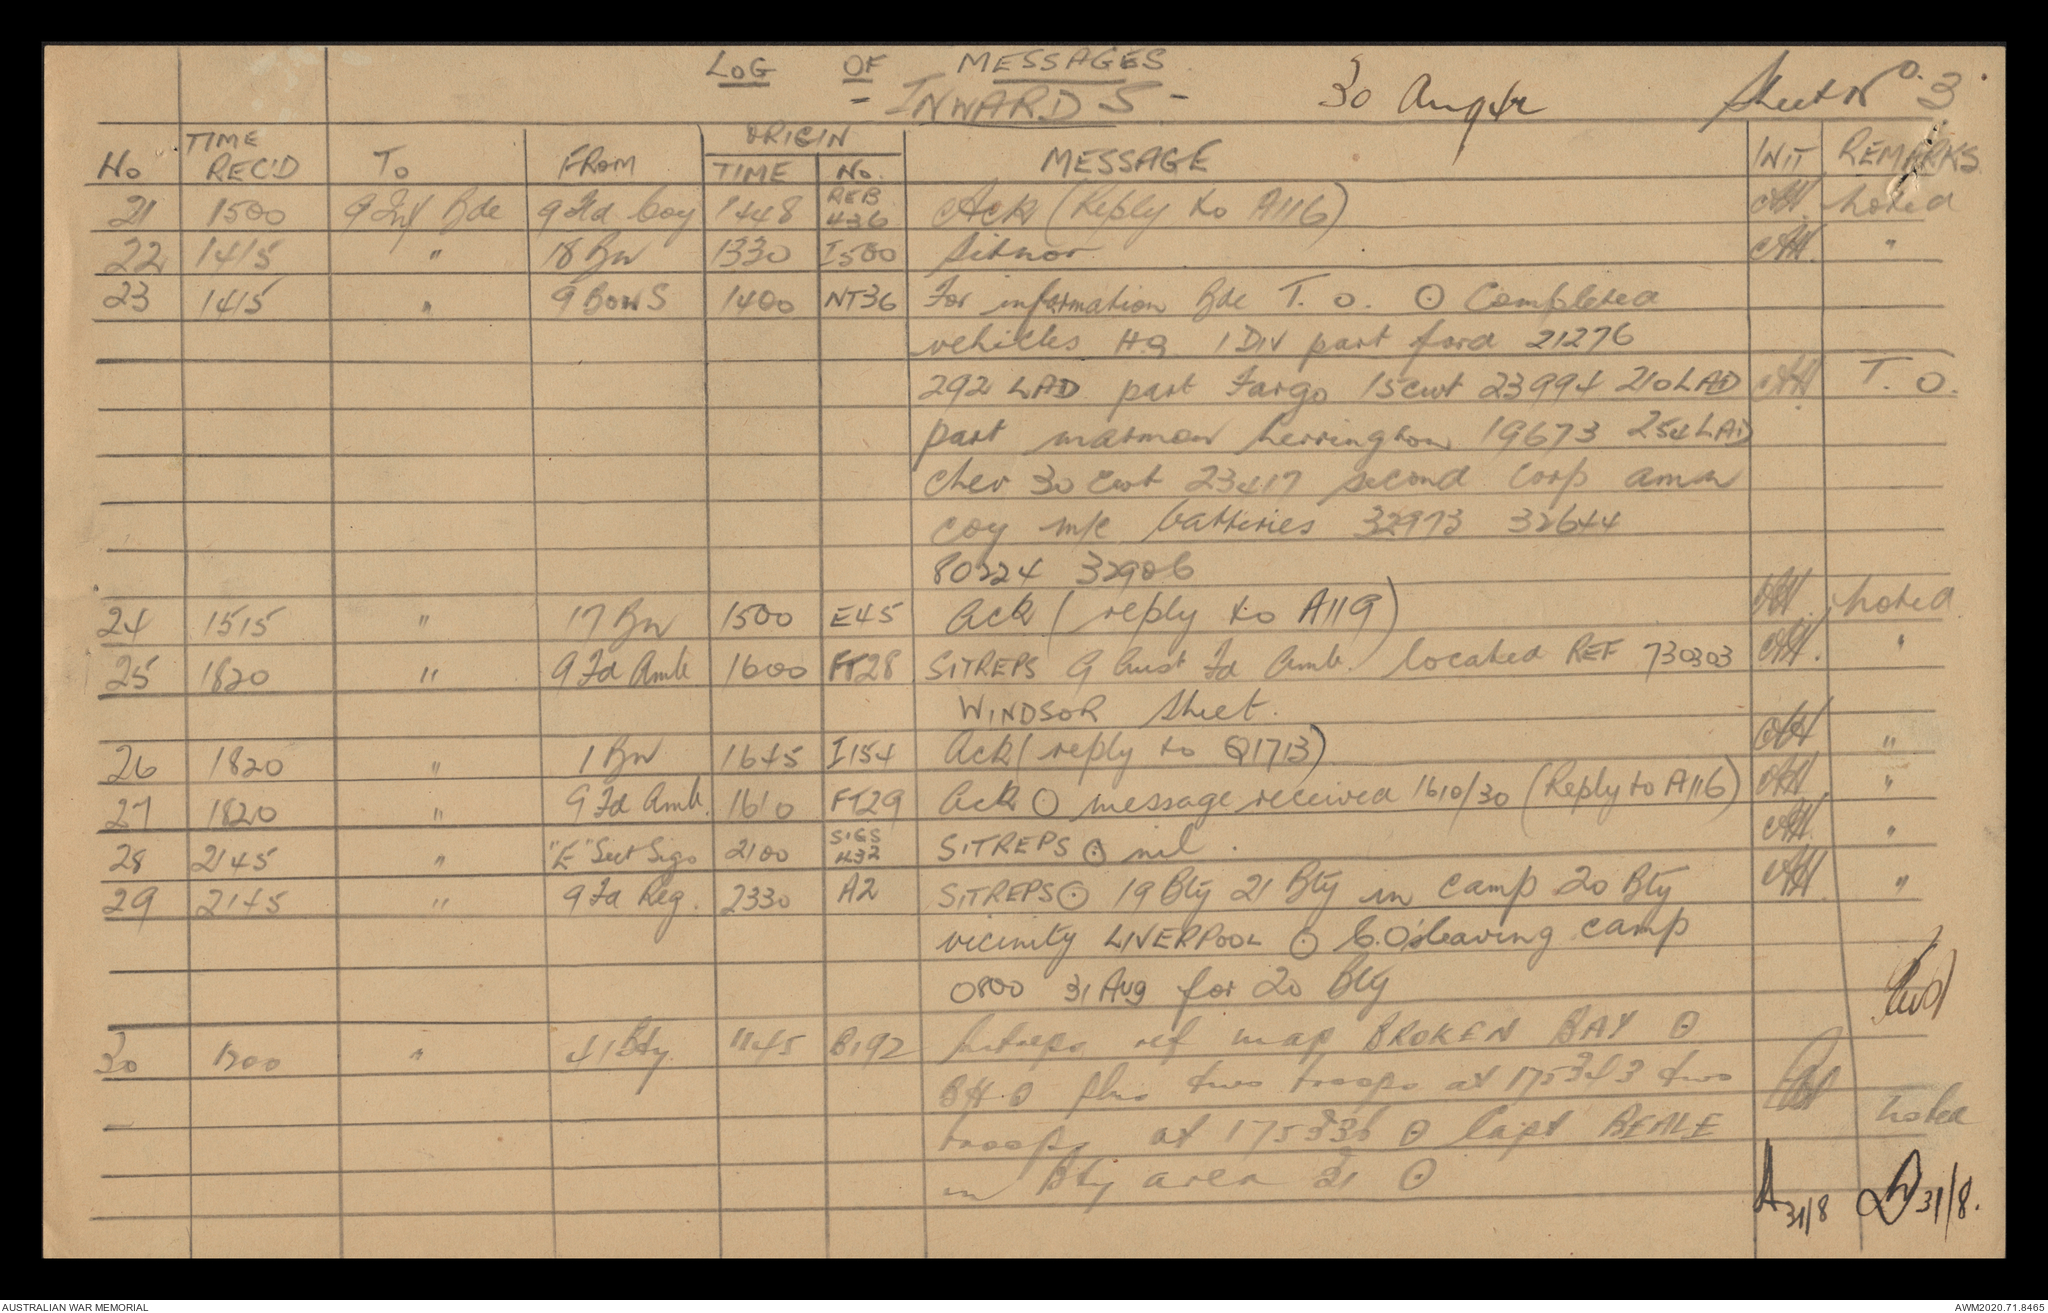 LOG OF MESSAGES
- INWARDS - 30 Aug 42 Sheet No. 3
No TIME REC'D TO FROM ORIGIN TIME No. MESSAGE INIT REMARKS
21 1500 9 Inf Bde 9 Fd Coy 1448 REB 436 Ack (Reply to A116) noted
22 1415 " 18 Bn 1330 I500 Sitnor "
23 1415 " 9 BOWS 1400 NT36 For information Bde T.O. ⊙ Completed
vehicles HQ 1 DIV part ford 21276
292 LAD part Fargo 15cwt 23994 210 LAD T.O.
part marmon herrington 19673 254 LAD
chev 30 cwt 23417 second Corp amn
coy m/c batteries 32973 32644
80224 32906
24 1515 " 17 Bn 1500 E45 Ack (reply to A119) noted
25 1820 " 9 Fd Amb 1600 FT28 SITREPS 9 Aust Fd Amb. located REF 730303 "
WINDSOR Sheet.
26 1820 " 1 Bn 1645 I154 Ack (reply to Q1713) "
27 1820 " 9 Fd Amb. 1610 FT29 Ack ⊙ message received 1610/30 (Reply to A116) "
28 2145 " "E" Sect Sigs 2100 SIGS 432 SITREPS ⊙ nil. "
29 2145 " 9 Fd Reg. 2330 A2 SITREPS ⊙ 19 Bty 21 Bty in camp 20 Bty "
vicinity LIVERPOOL ⊙ C.O. leaving camp
0800 31 Aug for 20 Bty
30 1200 " 41 Bty. 1145 B192 Sitreps ref map BROKEN BAY ⊙
BHQ plus two troops at 175343 two
troops at 175336 ⊙ Capt BEALE noted
in Bty area 21 ⊙
31/8 31/8.
AUSTRALIAN WAR MEMORIAL AWM2020.71.8465